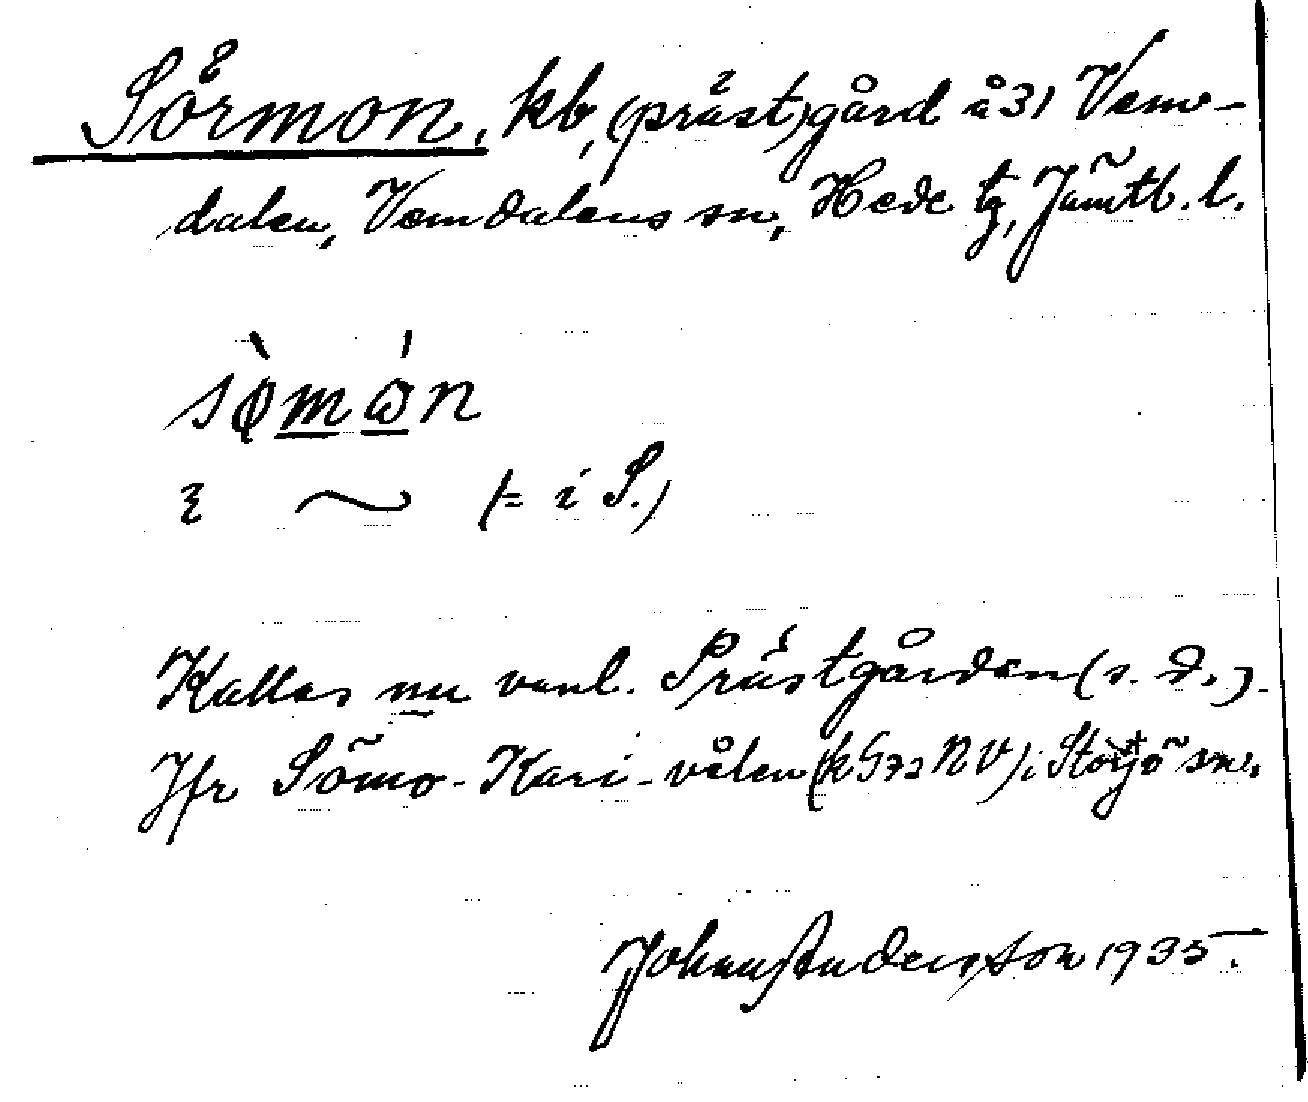 Sörmon, kb, (präst)gård å 31 Vem-
dalen, Vemdalens sn, Hede tg, Jämtl. l.
sø̀mǻn
ɛ ~ (= i S.)
Kallas nu vanl. Prästgården (s. d.).
Jfr Sömo-Kari-vålen (k 572 NV) i Storsjö sn.
Johan Andersson 1935.